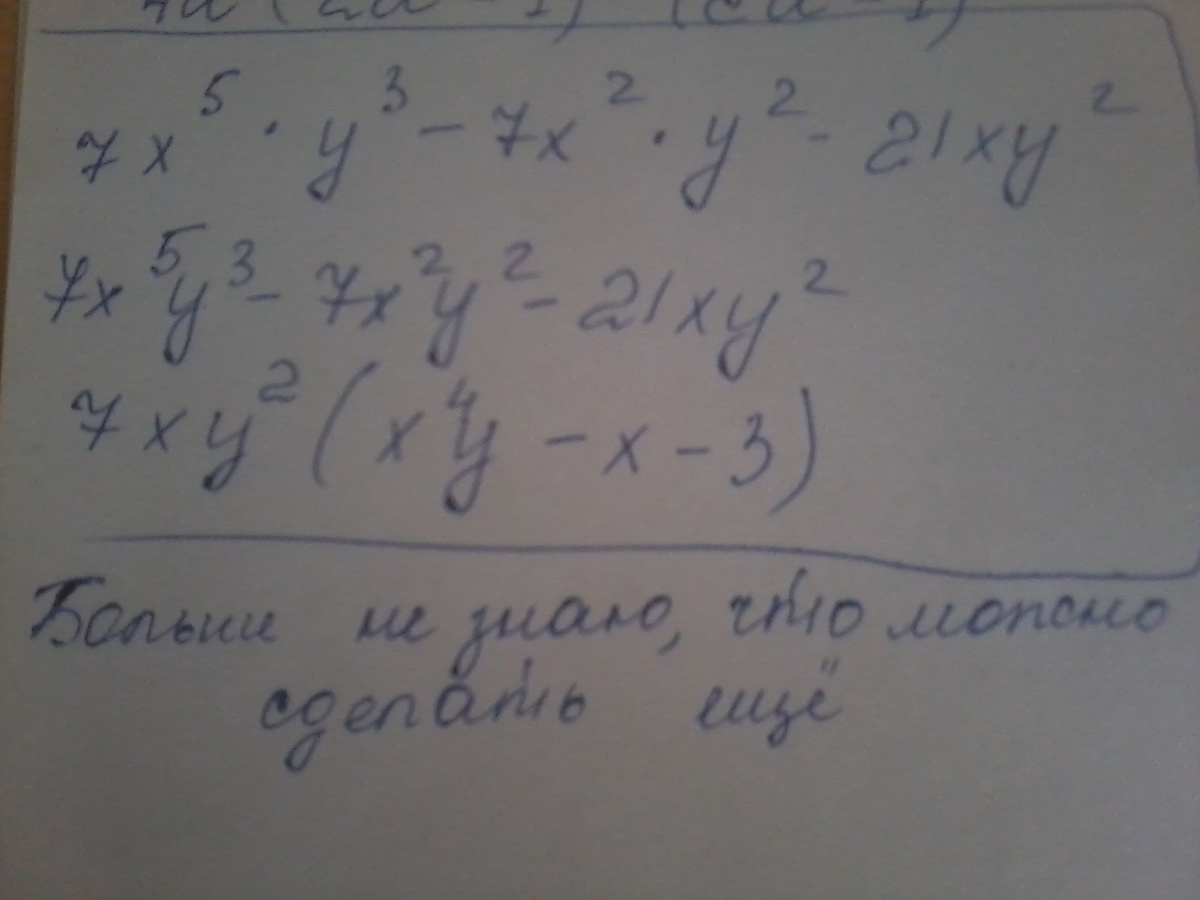 7x⁵ · y³ - 7x² · y² - 21xy²
7x⁵y³ - 7x²y² - 21xy²
7xy² (x⁴y - x - 3)
Больше не знаю, что можно
сделать ещё